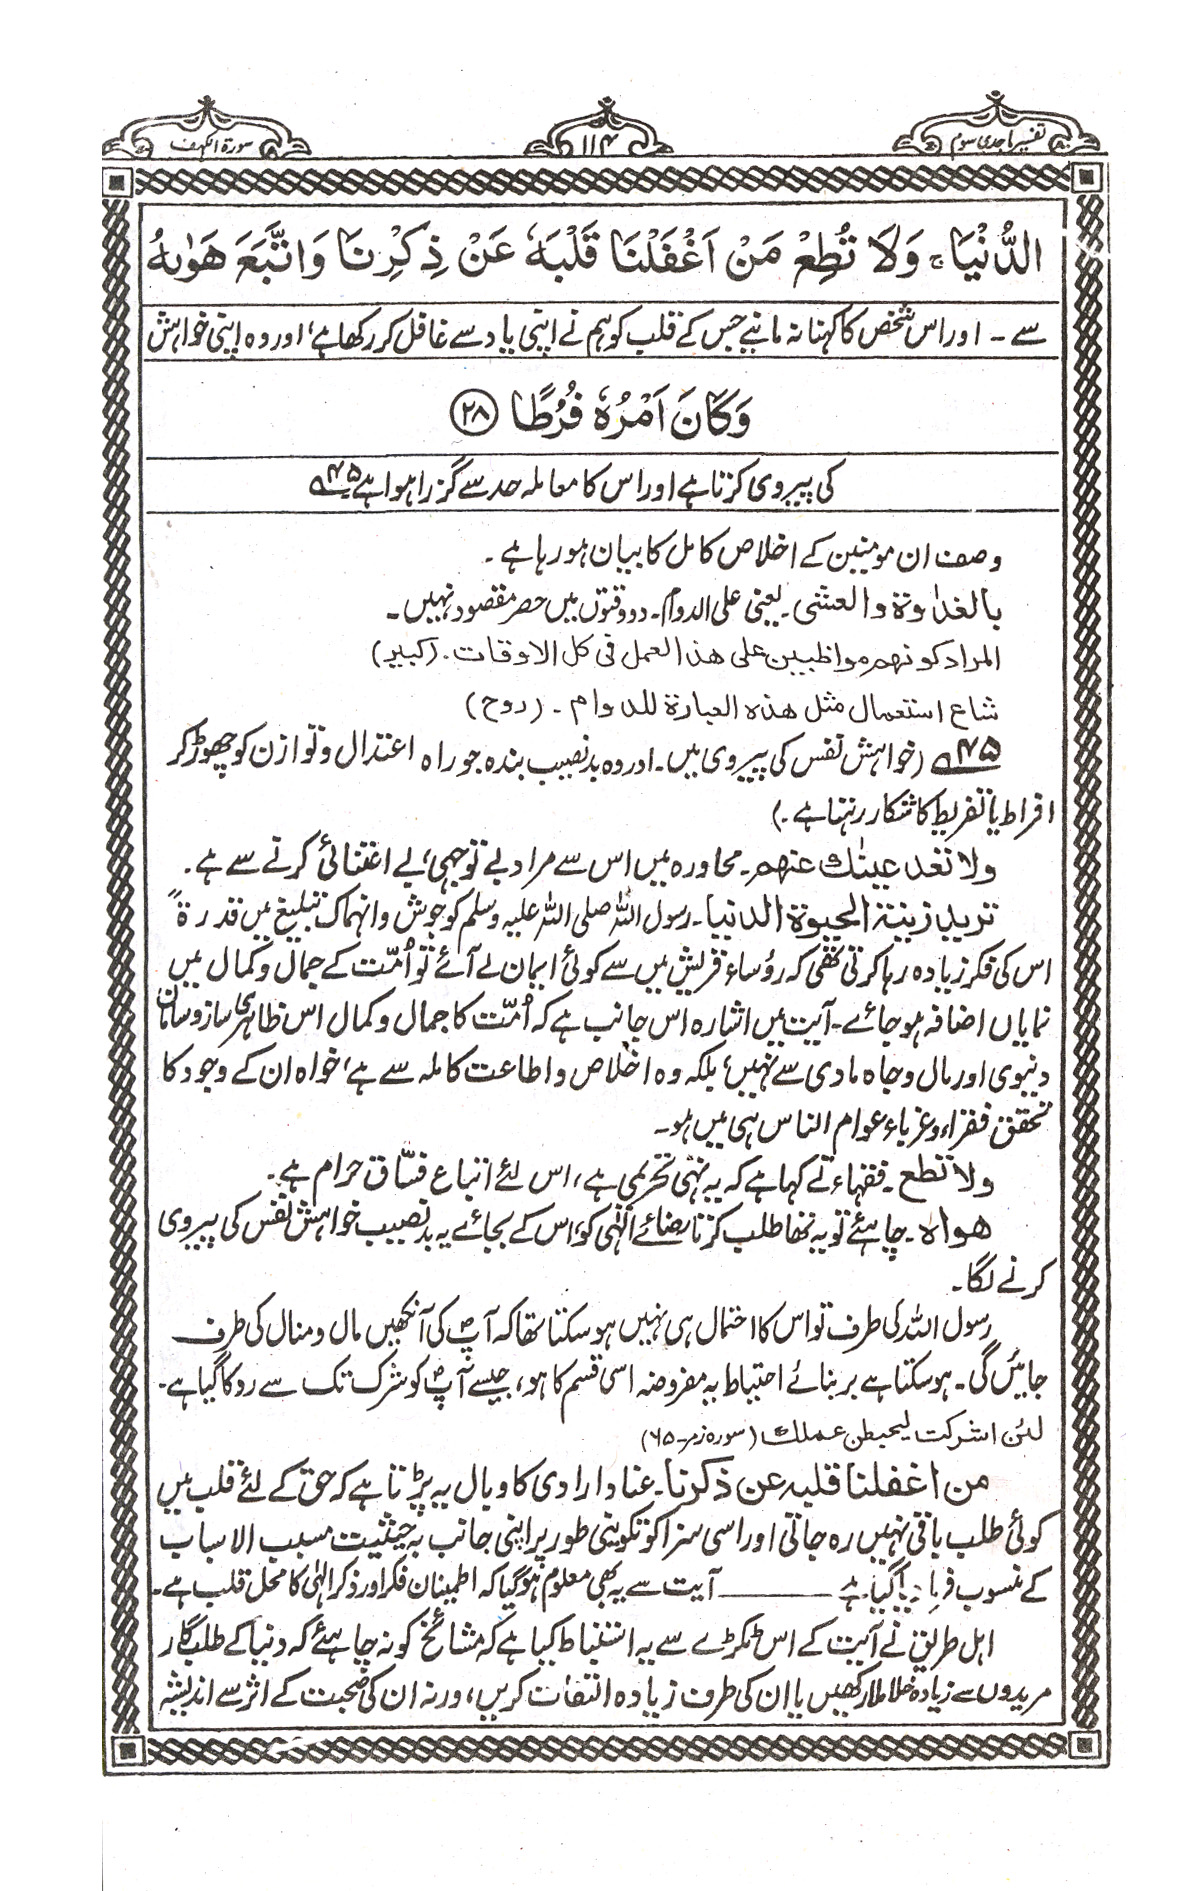 تفسیر ماجدی سوم
۱۱۴
سورۃ الکہف
الدُّنْيَا ۚ وَلَا تُطِعْ مَنْ اَغْفَلْنَا قَلْبَهٗ عَنْ ذِكْرِنَا وَاتَّبَعَ هَوٰىهُ
سے ۔ اور اس شخص کا کہنا نہ مانیے جس کے قلب کو ہم نے اپنی یاد سے غافل کر رکھا ہے، اور وہ اپنی خواہش
وَكَانَ اَمْرُهٗ فُرُطًا ۲۸
کی پیروی کرتا ہے اور اس کا معاملہ حد سے گزرا ہوا ہے ۴۵
وصف ان مومنین کے اخلاص کامل کا بیان ہو رہا ہے ۔
بالغدٰوۃ والعشی ۔ یعنی علی الدوام ۔ دو وقتوں میں حصر مقصود نہیں ۔
المراد کونھم مواظبین علی ھذا العمل فی کل الاوقات ۔ (کبیر)
شاع استعمال مثل ھذہ العبارۃ للدوام ۔ (روح)
۴۵ (خواہش نفس کی پیروی میں ۔ اور وہ بدنصیب بندہ جو راہ اعتدال و توازن کو چھوڑ کر
افراط یا تفریط کا شکار رہتا ہے ۔)
ولا تعد عینٰک عنھم ۔ محاورہ میں اس سے مراد بے توجہی، بے اعتنائی کرنے سے ہے ۔
ترید زینۃ الحیوۃ الدنیا ۔ رسول اللہ صلی اللہ علیہ وسلم کو جوش و انہماک تبلیغ میں قدرۃً
اس کی فکر زیادہ رہا کرتی تھی کہ رؤساء قریش میں سے کوئی ایمان لے آئے تو اُمّت کے جمال و کمال میں
نمایاں اضافہ ہو جائے ۔ آیت میں اشارہ اس جانب ہے کہ اُمّت کا جمال و کمال اس ظاہری ساز و سامان
دنیوی اور مال و جاہ مادی سے نہیں، بلکہ وہ اخلاص و اطاعت کاملہ سے ہے، خواہ ان کے وجود کا
تحقق فقراء و غرباء عوام الناس ہی میں ہو ۔
ولا تطع ۔ فقہاء نے کہا ہے کہ یہ نہی تحریمی ہے، اس لئے اتباع فسّاق حرام ہے ۔
ھواہ ۔ چاہئے تو یہ تھا طلب کرتا رضائے الٰہی کو، اس کے بجائے یہ بدنصیب خواہش نفس کی پیروی
کرنے لگا ۔
رسول اللہ کی طرف تو اس کا احتمال ہی نہیں ہو سکتا تھا کہ آپؐ کی آنکھیں مال و منال کی طرف
جائیں گی ۔ ہو سکتا ہے بر بنائے احتیاط یہ مفروضہ اسی قسم کا ہو، جیسے آپؐ کو شرک تک سے روکا گیا ہے ۔
لئن اشرکت لیحبطن عملک (سورہ زمر ۔ ۶۵)
من اغفلنا قلبہ عن ذکرنا ۔ عناد ارادی کا وبال یہ پڑتا ہے کہ حق کے لئے قلب میں
کوئی طلب باقی نہیں رہ جاتی اور اسی سزا کو تکوینی طور پر اپنی جانب بہ حیثیت مسبب الاسباب
کے منسوب فرما دیا گیا ہے ــــــــ آیت سے یہ بھی معلوم ہو گیا کہ اطمینان فکر اور ذکر الٰہی کا محل قلب ہے ۔
اہل طریق نے آیت کے اس ٹکڑے سے یہ استنباط کیا ہے کہ مشائخ کو نہ چاہئے کہ دنیا کے طلب گار
مریدوں سے زیادہ خلا ملا رکھیں یا ان کی طرف زیادہ التفات کریں، ورنہ ان کی صحبت کے اثر سے اندیشہ